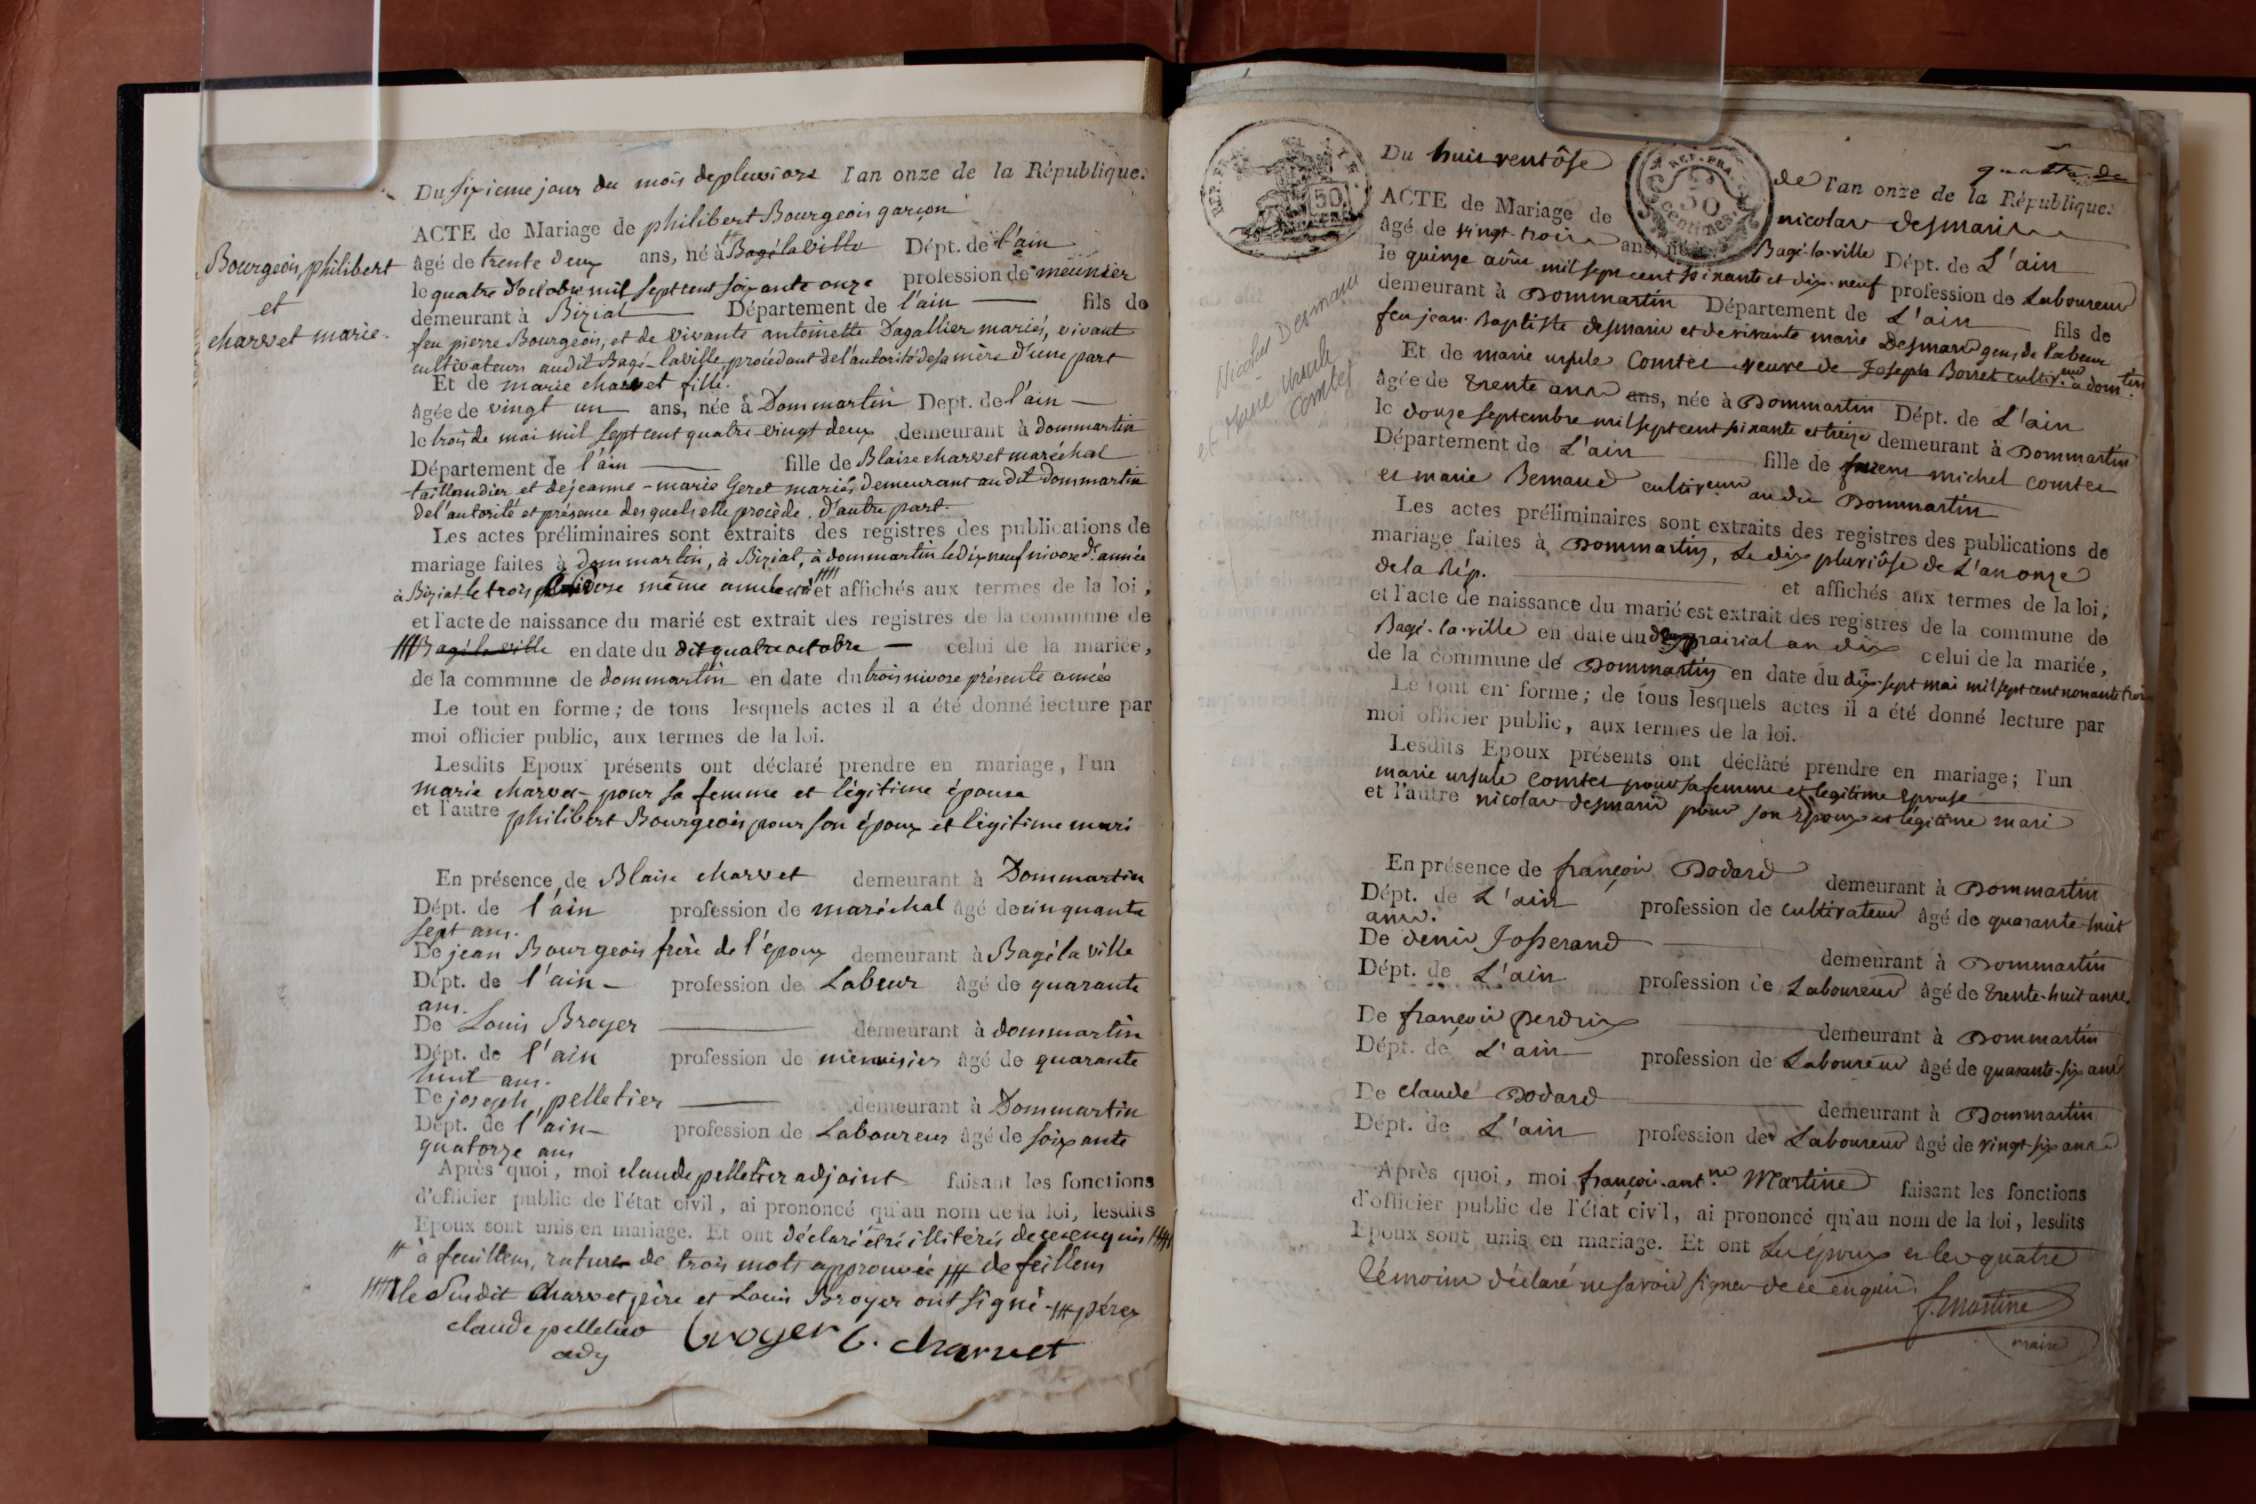 Du sixieme jour du mois de pluviose l'an onze de la République.
ACTE de Mariage de philibert Bourgeois garçon
Bourgeois, philibert
et
charvet marie.
âgé de trente deux ans, né à Bagé la ville Dépt. de l'ain
le quatre d'octobre mil sept cent soixante onze profession de meunier
demeurant à Biziat Département de l'ain fils de
feu pierre Bourgeois, et de vivante antoinette Dagallier mariés, vivant
cultivateurs audit Bagé-la ville, procédant de l'autorité de sa mère d'une part
Et de marie charvet fille.
âgée de vingt un ans, née à Dommartin Dept. de l'ain
le trois de mai mil sept cent quatre-vingt deux demeurant à dommartin
Département de l'ain fille de Blaise charvet maréchal
taillandier et de jeanne-marie Geret mariés demeurant au dit dommartin
de l'autorité et présence desquels elle procède, d'autre part.
Les actes préliminaires sont extraits des registres des publications de
mariage faites à dommartin, à Biziat, à dommartin le dix neuf nivose de. année
à Biziat le trois pluviose même année et affichés aux termes de la loi ;
et l'acte de naissance du marié est extrait des registres de la commune de
Bagé la ville en date du dit quatre octobre celui de la mariée,
de la commune de dommartin en date du trois nivose présente année
Le tout en forme ; de tous lesquels actes il a été donné lecture par
moi officier public, aux termes de la loi.
Lesdits Epoux présents ont déclaré prendre en mariage, l'un
marie charvet pour sa femme et légitime épouse
et l'autre philibert Bourgeois pour son époux et légitime mari
En présence de Blaise charvet demeurant à Dommartin
Dépt. de l'ain profession de maréchal âgé de cinquante
sept ans.
De jean Bourgeois frère de l'époux demeurant à Bagé la ville
Dépt. de l'ain profession de Labeur âgé de quarante
ans.
De Louis Broyer demeurant à dommartin
Dépt. de l'ain profession de menuisier âgé de quarante
huit ans.
De joseph pelletier demeurant à Dommartin
Dépt. de l'ain profession de Laboureur âgé de soixante
quatorze ans
Après quoi, moi claude pelletier adjoint faisant les fonctions
d'officier public de l'état civil, ai prononcé qu'au nom de la loi, lesdits
Epoux sont unis en mariage. Et ont déclaré être illitérés de ce enquis
à feuillens, rature de trois mots approuvée de feillens
le Susdit Charvet père et Louis Broyer ont signé
claude pelletier Broyer b. charvet
adj
REP. FRA. 50 CENT.
REP. FRA. 50 Centimes
Du huit ventôse de l'an onze de la République.
ACTE de Mariage de nicolas desmaris
âgé de vingt-trois ans, né à Bagé-la-ville Dépt. de L'ain
le quinze août mil sept cent soixante et dix-neuf profession de Laboureur
demeurant à Dommartin Département de L'ain fils de
feu jean-Baptiste desmaris et de vivante marie Desmaris gens de labeur
Nicolas Desmaris
et Marie Ursule
Combet
Et de marie ursule Comtet veuve de Joseph Borret cultiv.eur à dom.tin
âgée de trente ans ans, née à Dommartin Dépt. de L'ain
le douze septembre mil sept cent soixante et treize demeurant à Dommartin
Département de L'ain fille de furent michel comtet
et marie Bernaud cultiveurs au dit Dommartin
Les actes préliminaires sont extraits des registres des publications de
mariage faites à Dommartin, Le dix pluviôse de L'an onze
de la Rép. et affichés aux termes de la loi ;
et l'acte de naissance du marié est extrait des registres de la commune de
Bagé-la-ville en date du prairial an dix celui de la mariée,
de la commune de Dommartin en date du dix-sept mai mil sept cent nonante trois
Le tout en forme ; de tous lesquels actes il a été donné lecture par
moi officier public, aux termes de la loi.
Lesdits Epoux présents ont déclaré prendre en mariage ; l'un
marie ursule comtet pour sa femme et légitime épouse
et l'autre nicolas desmaris pour son époux et légitime mari
En présence de françois Dodard demeurant à Dommartin
Dépt. de L'ain profession de cultivateur âgé de quarante-huit
ans.
De denis Josserand demeurant à Dommartin
Dépt. de L'ain profession de Laboureur âgé de trente-huit ans.
De françois perdrix demeurant à Dommartin
Dépt. de L'ain profession de Laboureur âgé de quarante-six ans
De claude Dodard demeurant à Dommartin
Dépt. de L'ain profession de Laboureur âgé de vingt-six ans
Après quoi, moi françois-ant.ne Martine faisant les fonctions
d'officier public de l'état civil, ai prononcé qu'au nom de la loi, lesdits
Epoux sont unis en mariage. Et ont Les époux et les quatre
témoins déclaré ne savoir signer de ce enquis.
f. martine
maire